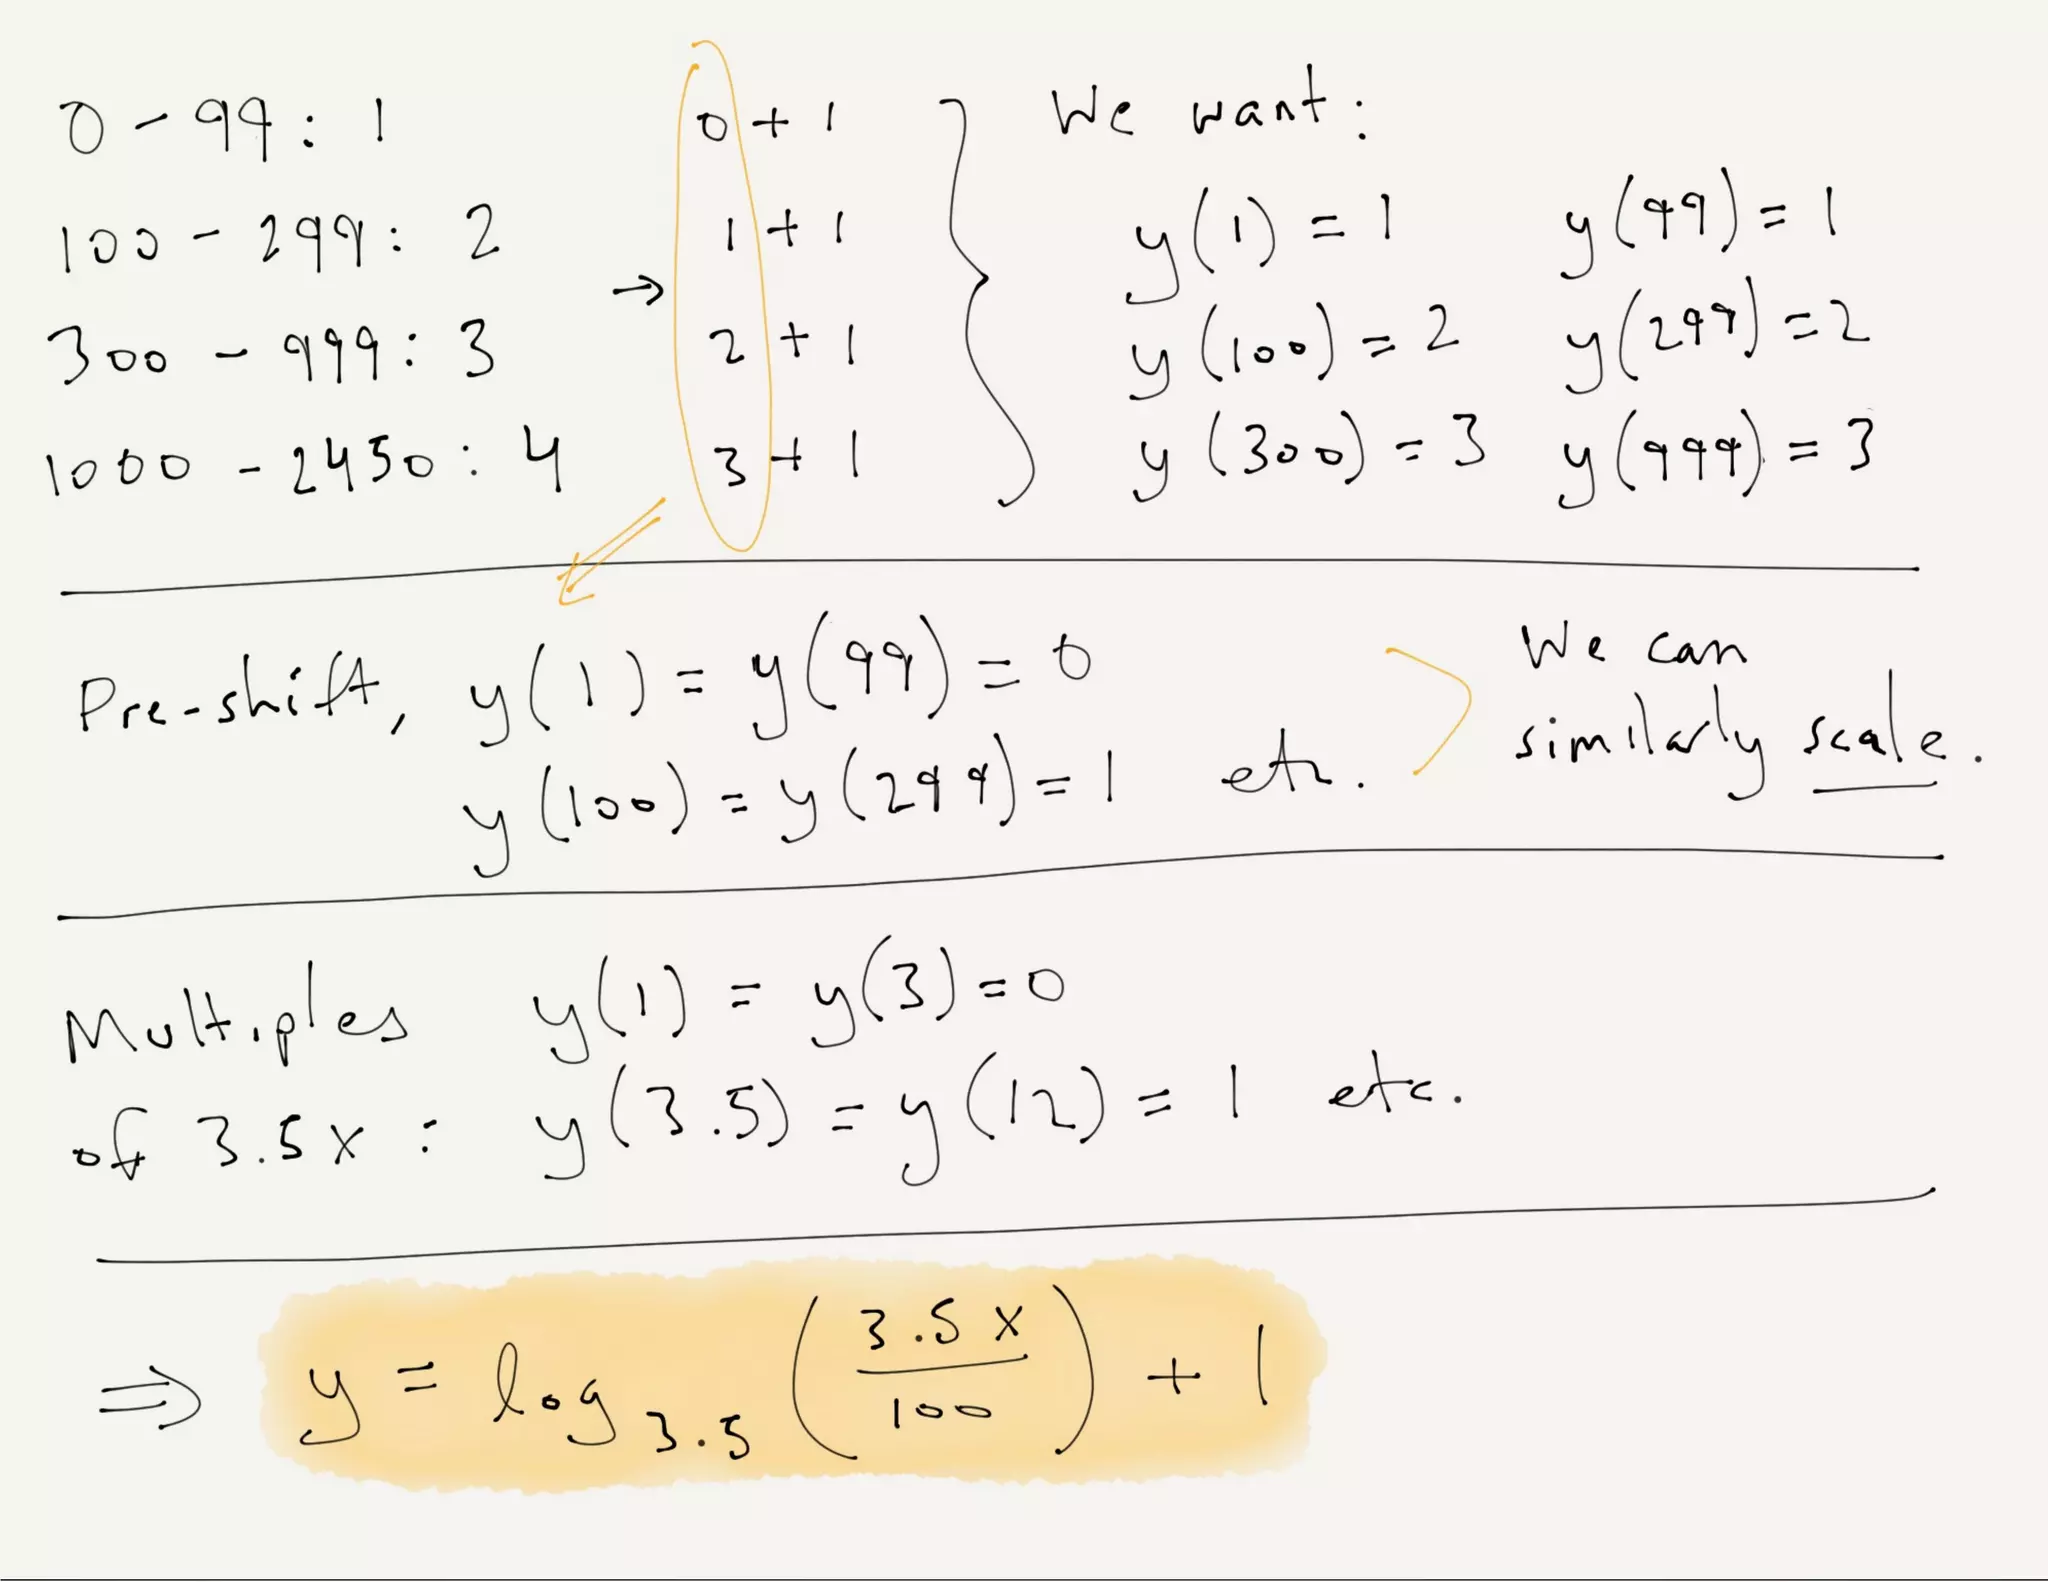 0 - 99 : 1
100 - 299 : 2
300 - 999 : 3
1000 - 2450 : 4
→
0 + 1
1 + 1
2 + 1
3 + 1
We want:
y(1) = 1 y(99) = 1
y(100) = 2 y(299) = 2
y(300) = 3 y(999) = 3
Pre-shift, y(1) = y(99) = 0
y(100) = y(299) = 1 etc.
We can
similarly scale.
Multiples y(1) = y(3) = 0
of 3.5x : y(3.5) = y(12) = 1 etc.
⇒ y = log_3.5 (3.5x / 100) + 1